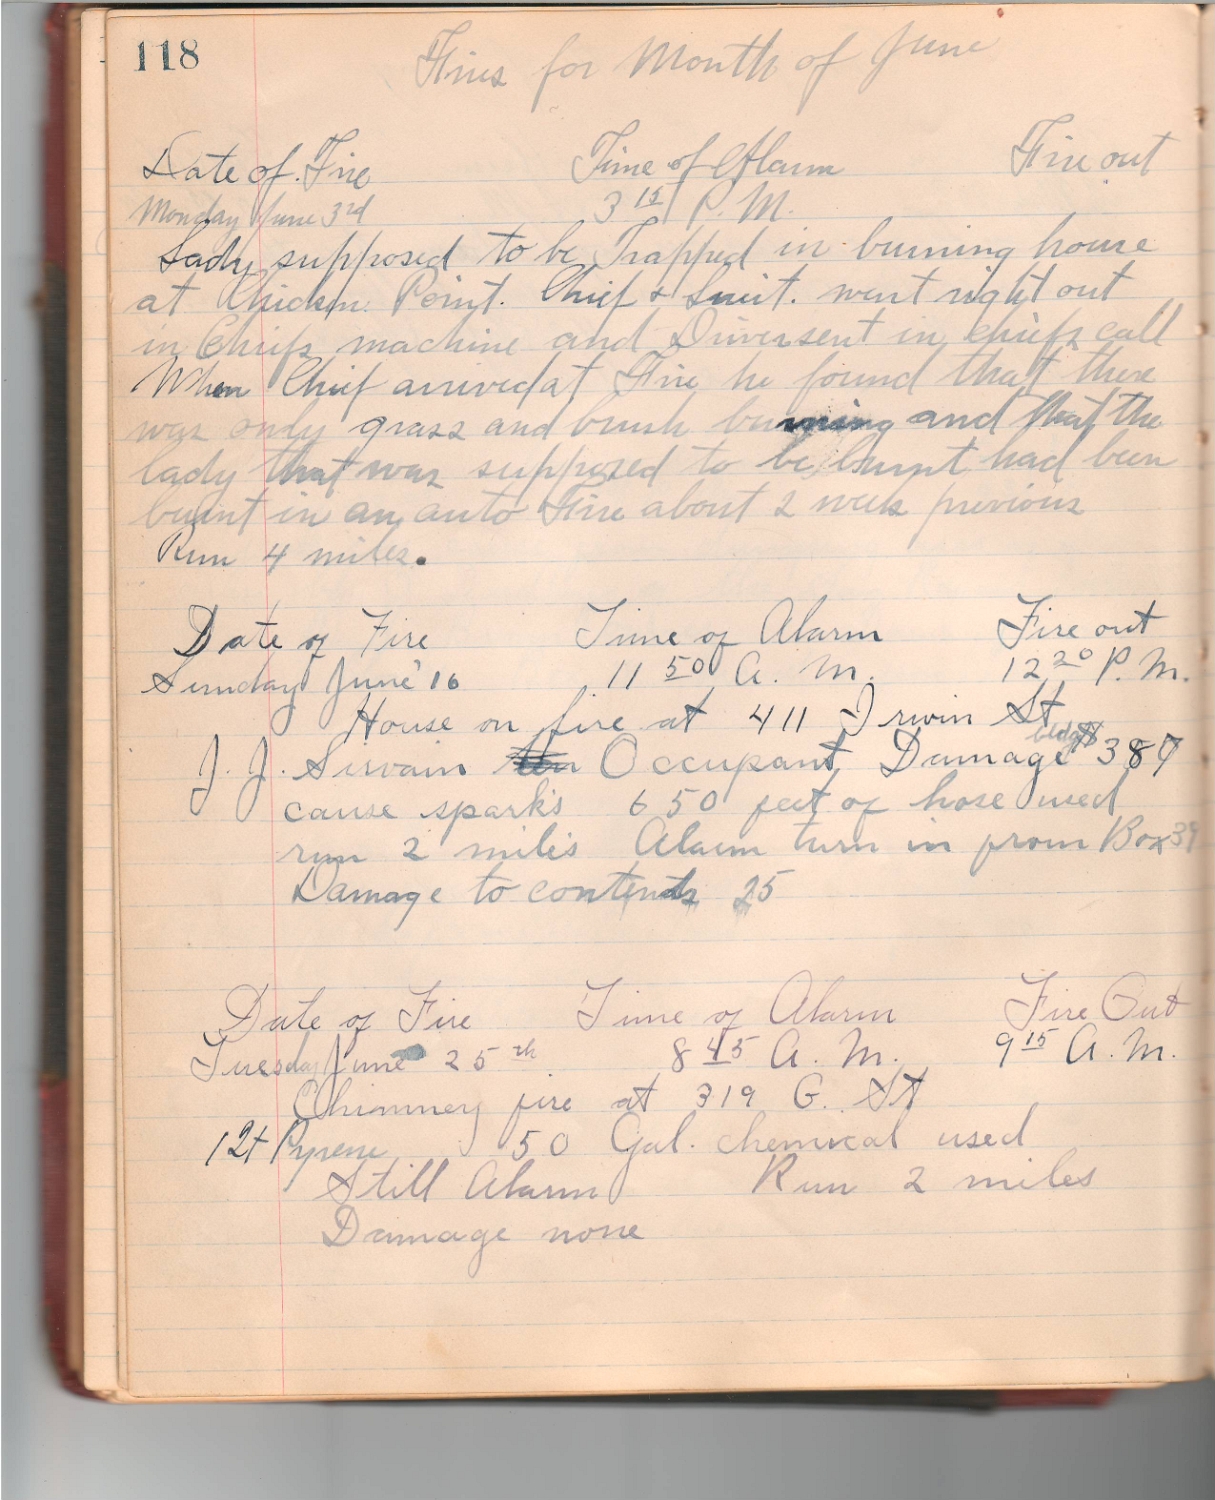 118
Fires for Month of June
Date of Fire Time of Alarm Fire out
Monday June 3rd 3 15 P. M.
Lady supposed to be Trapped in burning house
at Chicken Point. Chief & Lieut. went right out
in Chiefs machine and sent in chiefs call
When Chief arrived at Fire he found that there
was only grass and brush burning and that the
lady that was supposed to be burnt had been
burnt in an auto Fire about 2 week previous
Run 4 miles.
Date of Fire Time of Alarm Fire out
Sunday June 16 11 50 A. M. 12 20 P. M.
House on fire at 411 Irwin St
J. J. Occupant, Damage bldg $ 387
cause sparks 650 feet of hose used
run 2 miles Alarm turn in from Box 39
Damage to contents 25
Date of Fire Time of Alarm Fire Out
Tuesday June 25th 8 45 A. M. 9 15 A. M.
Chimney fire at 319 G. St
1 2t Pyrene 50 Gal. chemical used
Still Alarm Run 2 miles
Damage none